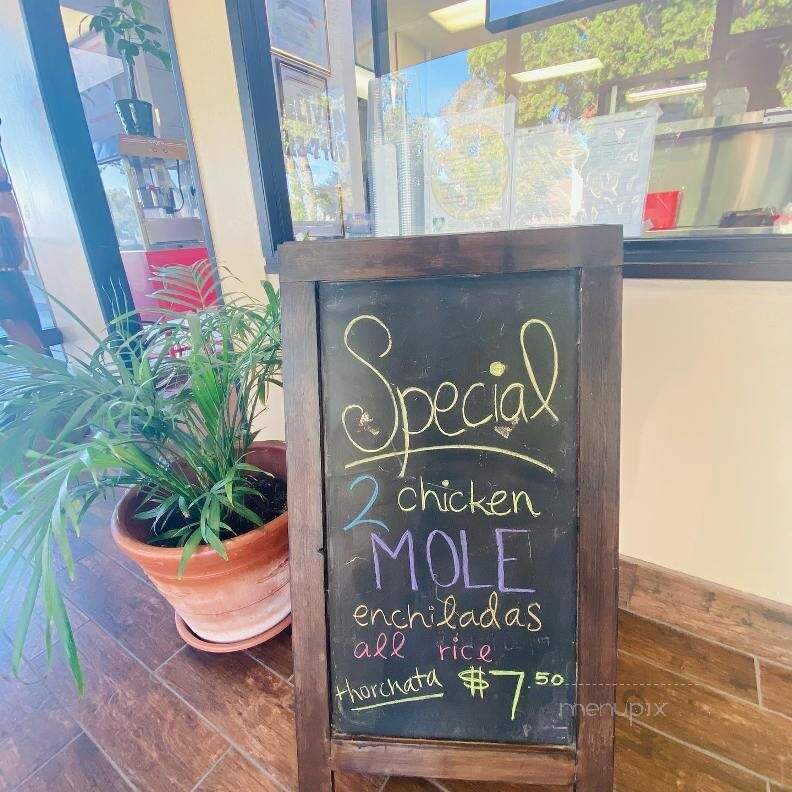 Special
2 chicken
MOLE
enchiladas
all rice
+horchata $7.50
menupix